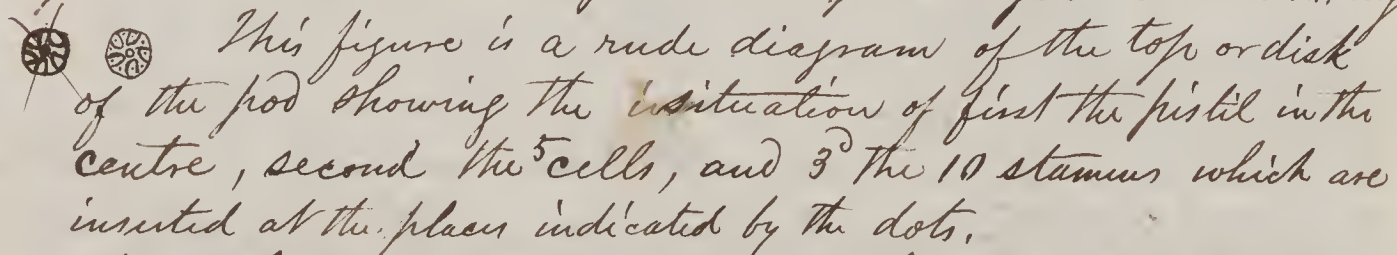 This figure is a rude diagram of the top or disk
of the pod showing the insituation of first the pistil in the
centre, second the 5 cells, and 3d the 10 stamens which are
inserted at the places indicated by the dots.